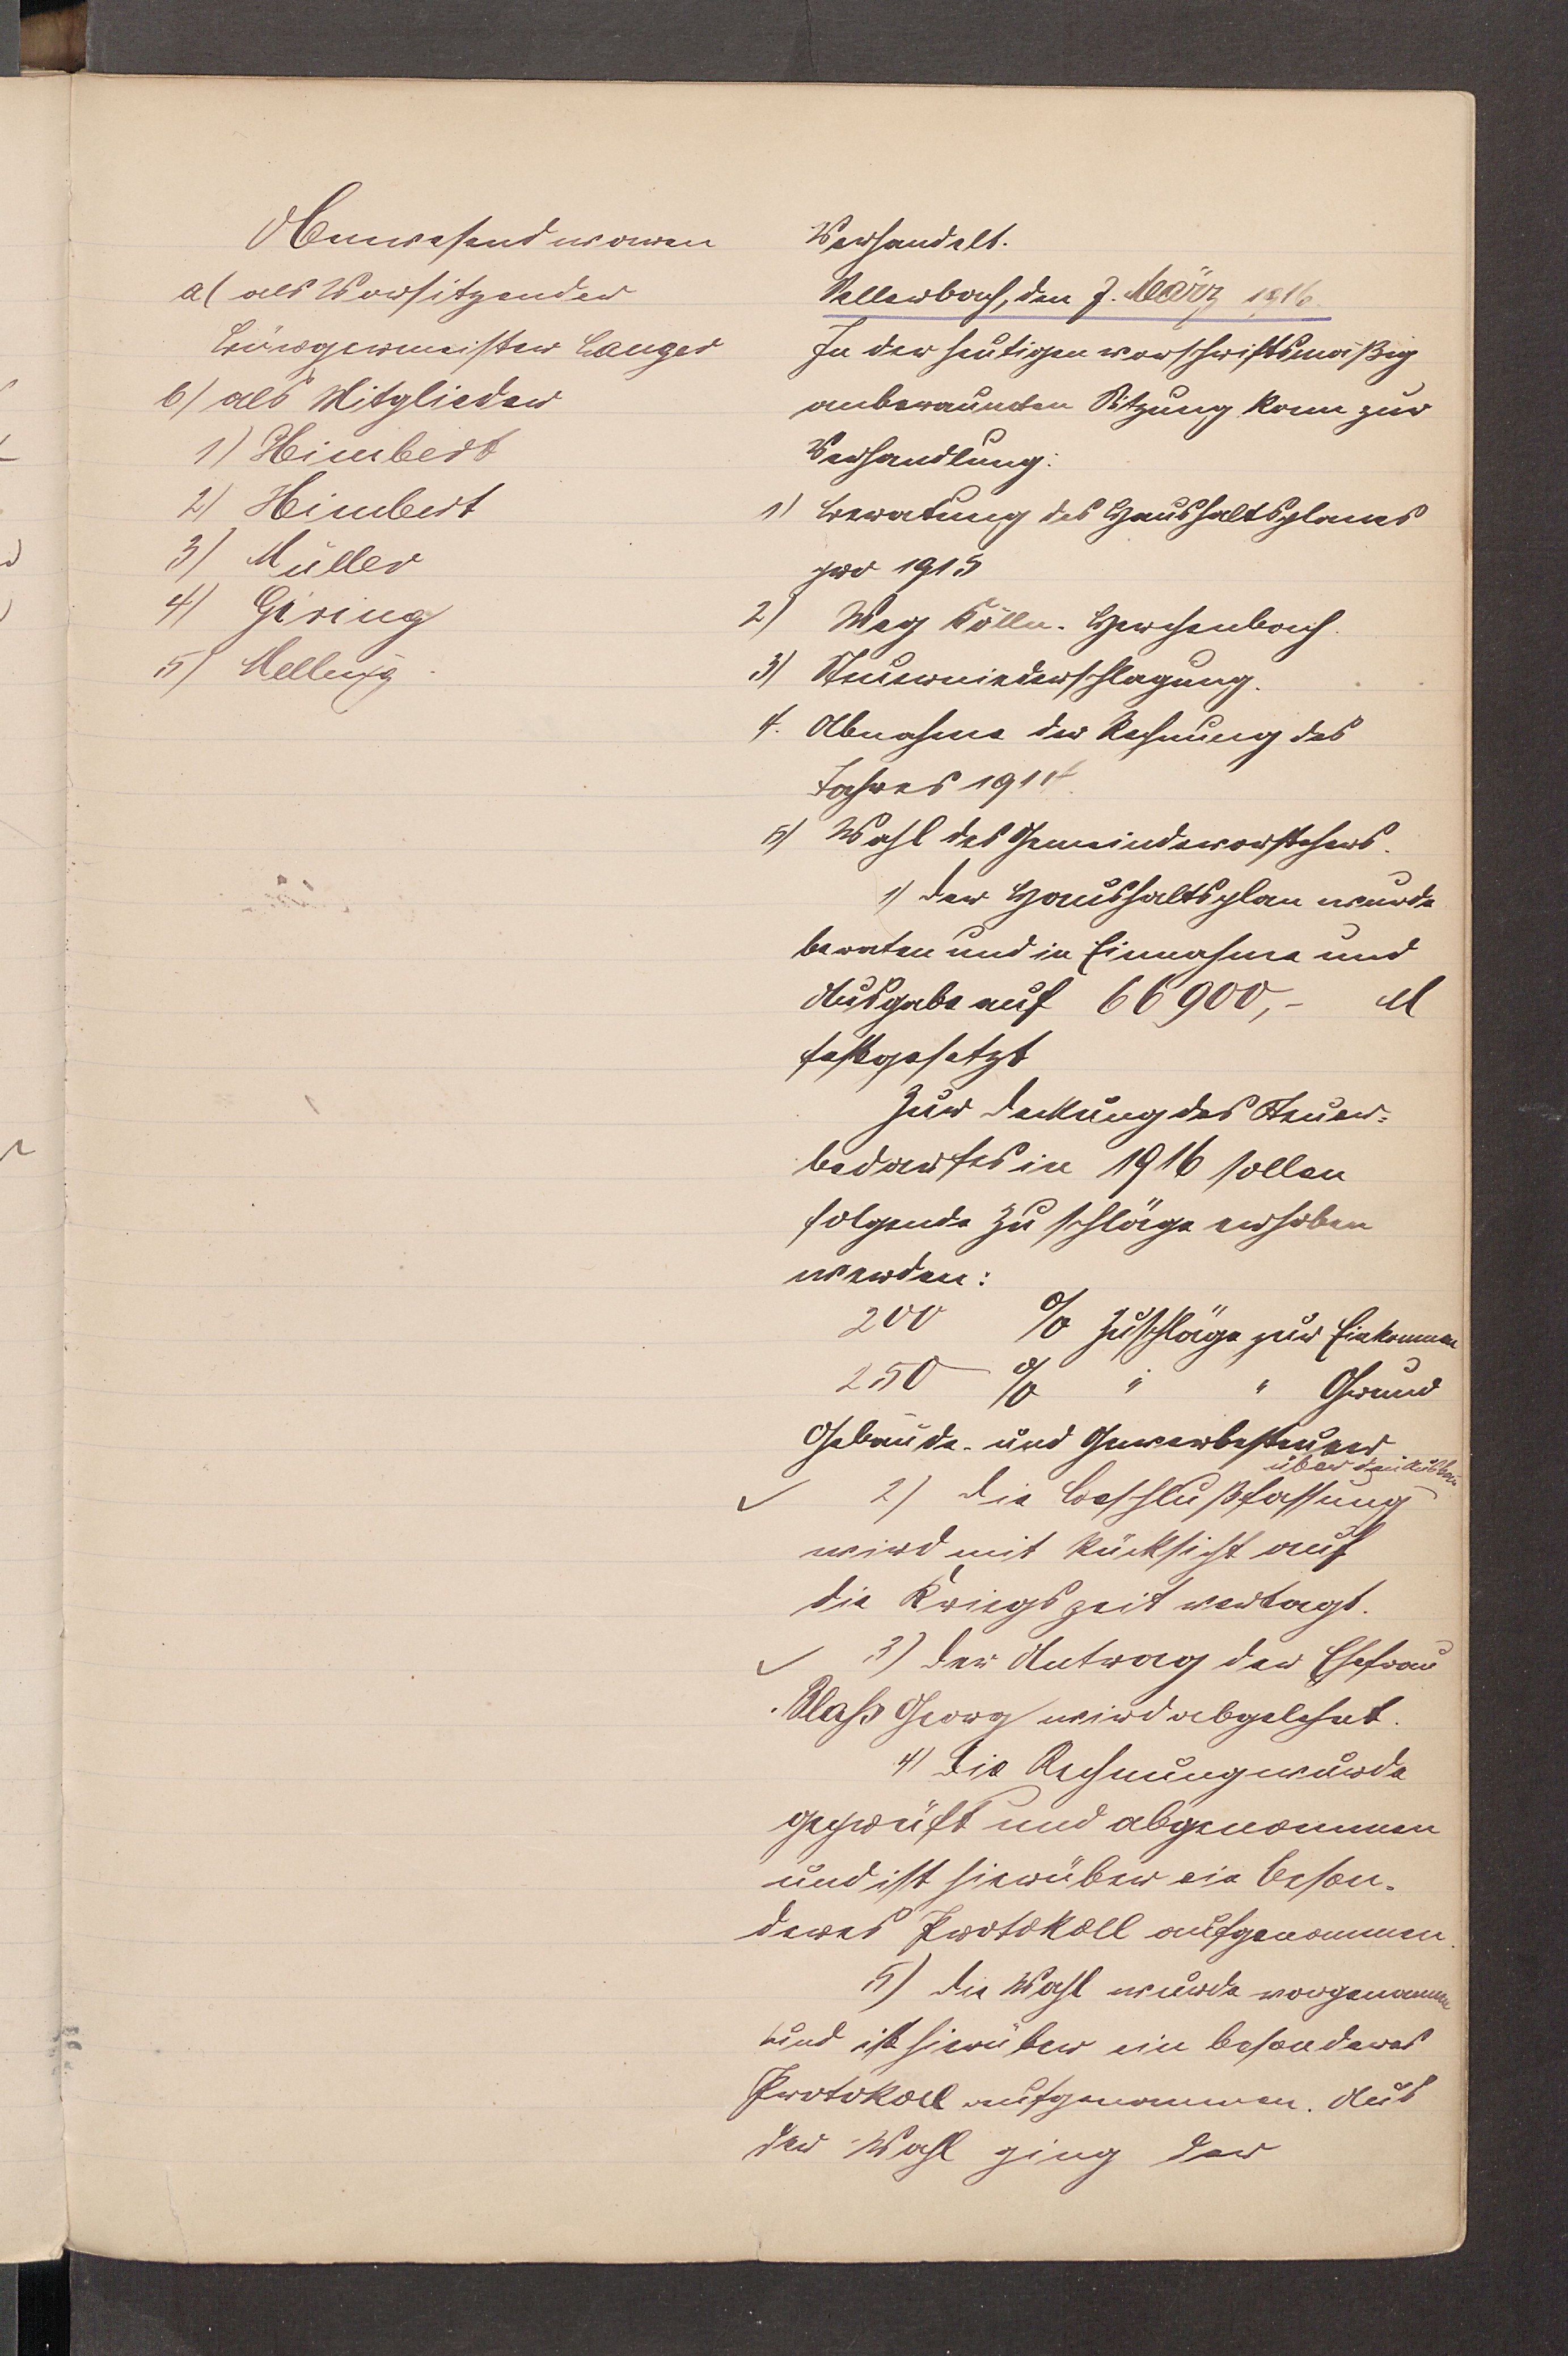 Anwesend waren
a) als Vorsitzender
Bürgermeister Langer
b) als Mitglieder
1) Himbert
2) Himbert
3) Müller
4) Gering
5) Melling
Verhandelt.
Sellerbach, den 7. März 1916.
In der heutigen vorschriftsmäßig
anberaumten Sitzung kam zur
Verhandlung:
1) Beratung des Haushaltsplanes
pro 1915
2) Weg Kölln-Herchenbach.
3) Steuerniederschlagung.
4. Abnahme der Rechnung des
Jahres 1914.
5) Wahl des Gemeindevorstehers.
1) Der Haushaltsplan wurde
beraten und in Einnahme und
Ausgabe auf 66900,- M
festgesetzt
Zur Deckung des Steuer-
bedarfes in 1916 sollen
folgende Zuschläge erhoben
werden:
200 % Zuschläge zur Einkommen
250 % " " Grund
Gebäude- und Gewerbesteuer
über den Ausbau
2) Die Beschlußfassung
wird mit Rücksicht auf
die Kriegszeit vertagt.
3) Der Antrag der Ehefrau
Blass Georg wird abgelehnt.
4) Die Rechnung wurde
geprüft und abgenommen
und ist hierüber ein beson-
deres Protokoll aufgenommen.
5) Die Wahl wurde vorgenommen
und ist hierüber ein besonderes
Protokoll aufgenommen. Aus
der Wahl ging der